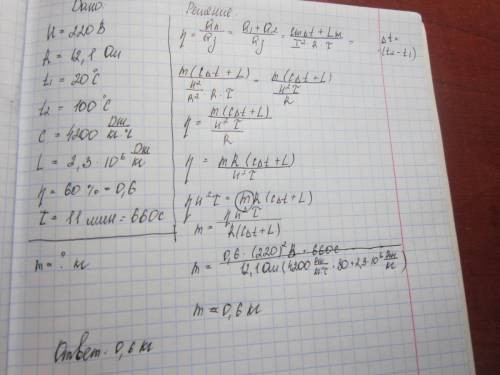 Дано
U = 220 В
R = 12,1 Ом
t₁ = 20°C
t₂ = 100°C
C = 4200 Дж/кг·°C
L = 2,3·10⁶ Дж/кг
η = 60% = 0,6
τ = 11 мин = 660с
m = ? кг
Решение
η = Qп/Qз = (Q₁+Q₂)/Qз = (cmΔt + Lm)/(I²·R·τ) =
Δt = (t₂-t₁)
(m(cΔt+L))/(U²/R² R·τ) = (m(cΔt+L))/(U²τ/R)
η = (m(cΔt+L))/(U²τ/R)
η = (mR(cΔt+L))/(U²τ)
ηU²τ = mR(cΔt+L)
m = (ηU²τ)/(R(cΔt+L))
m = (0,6·(220)²В·660с)/(12,1Ом(4200 Дж/кг·°C·80+2,3·10⁶ Дж/кг))
m = 0,6 кг
Ответ: 0,6 кг